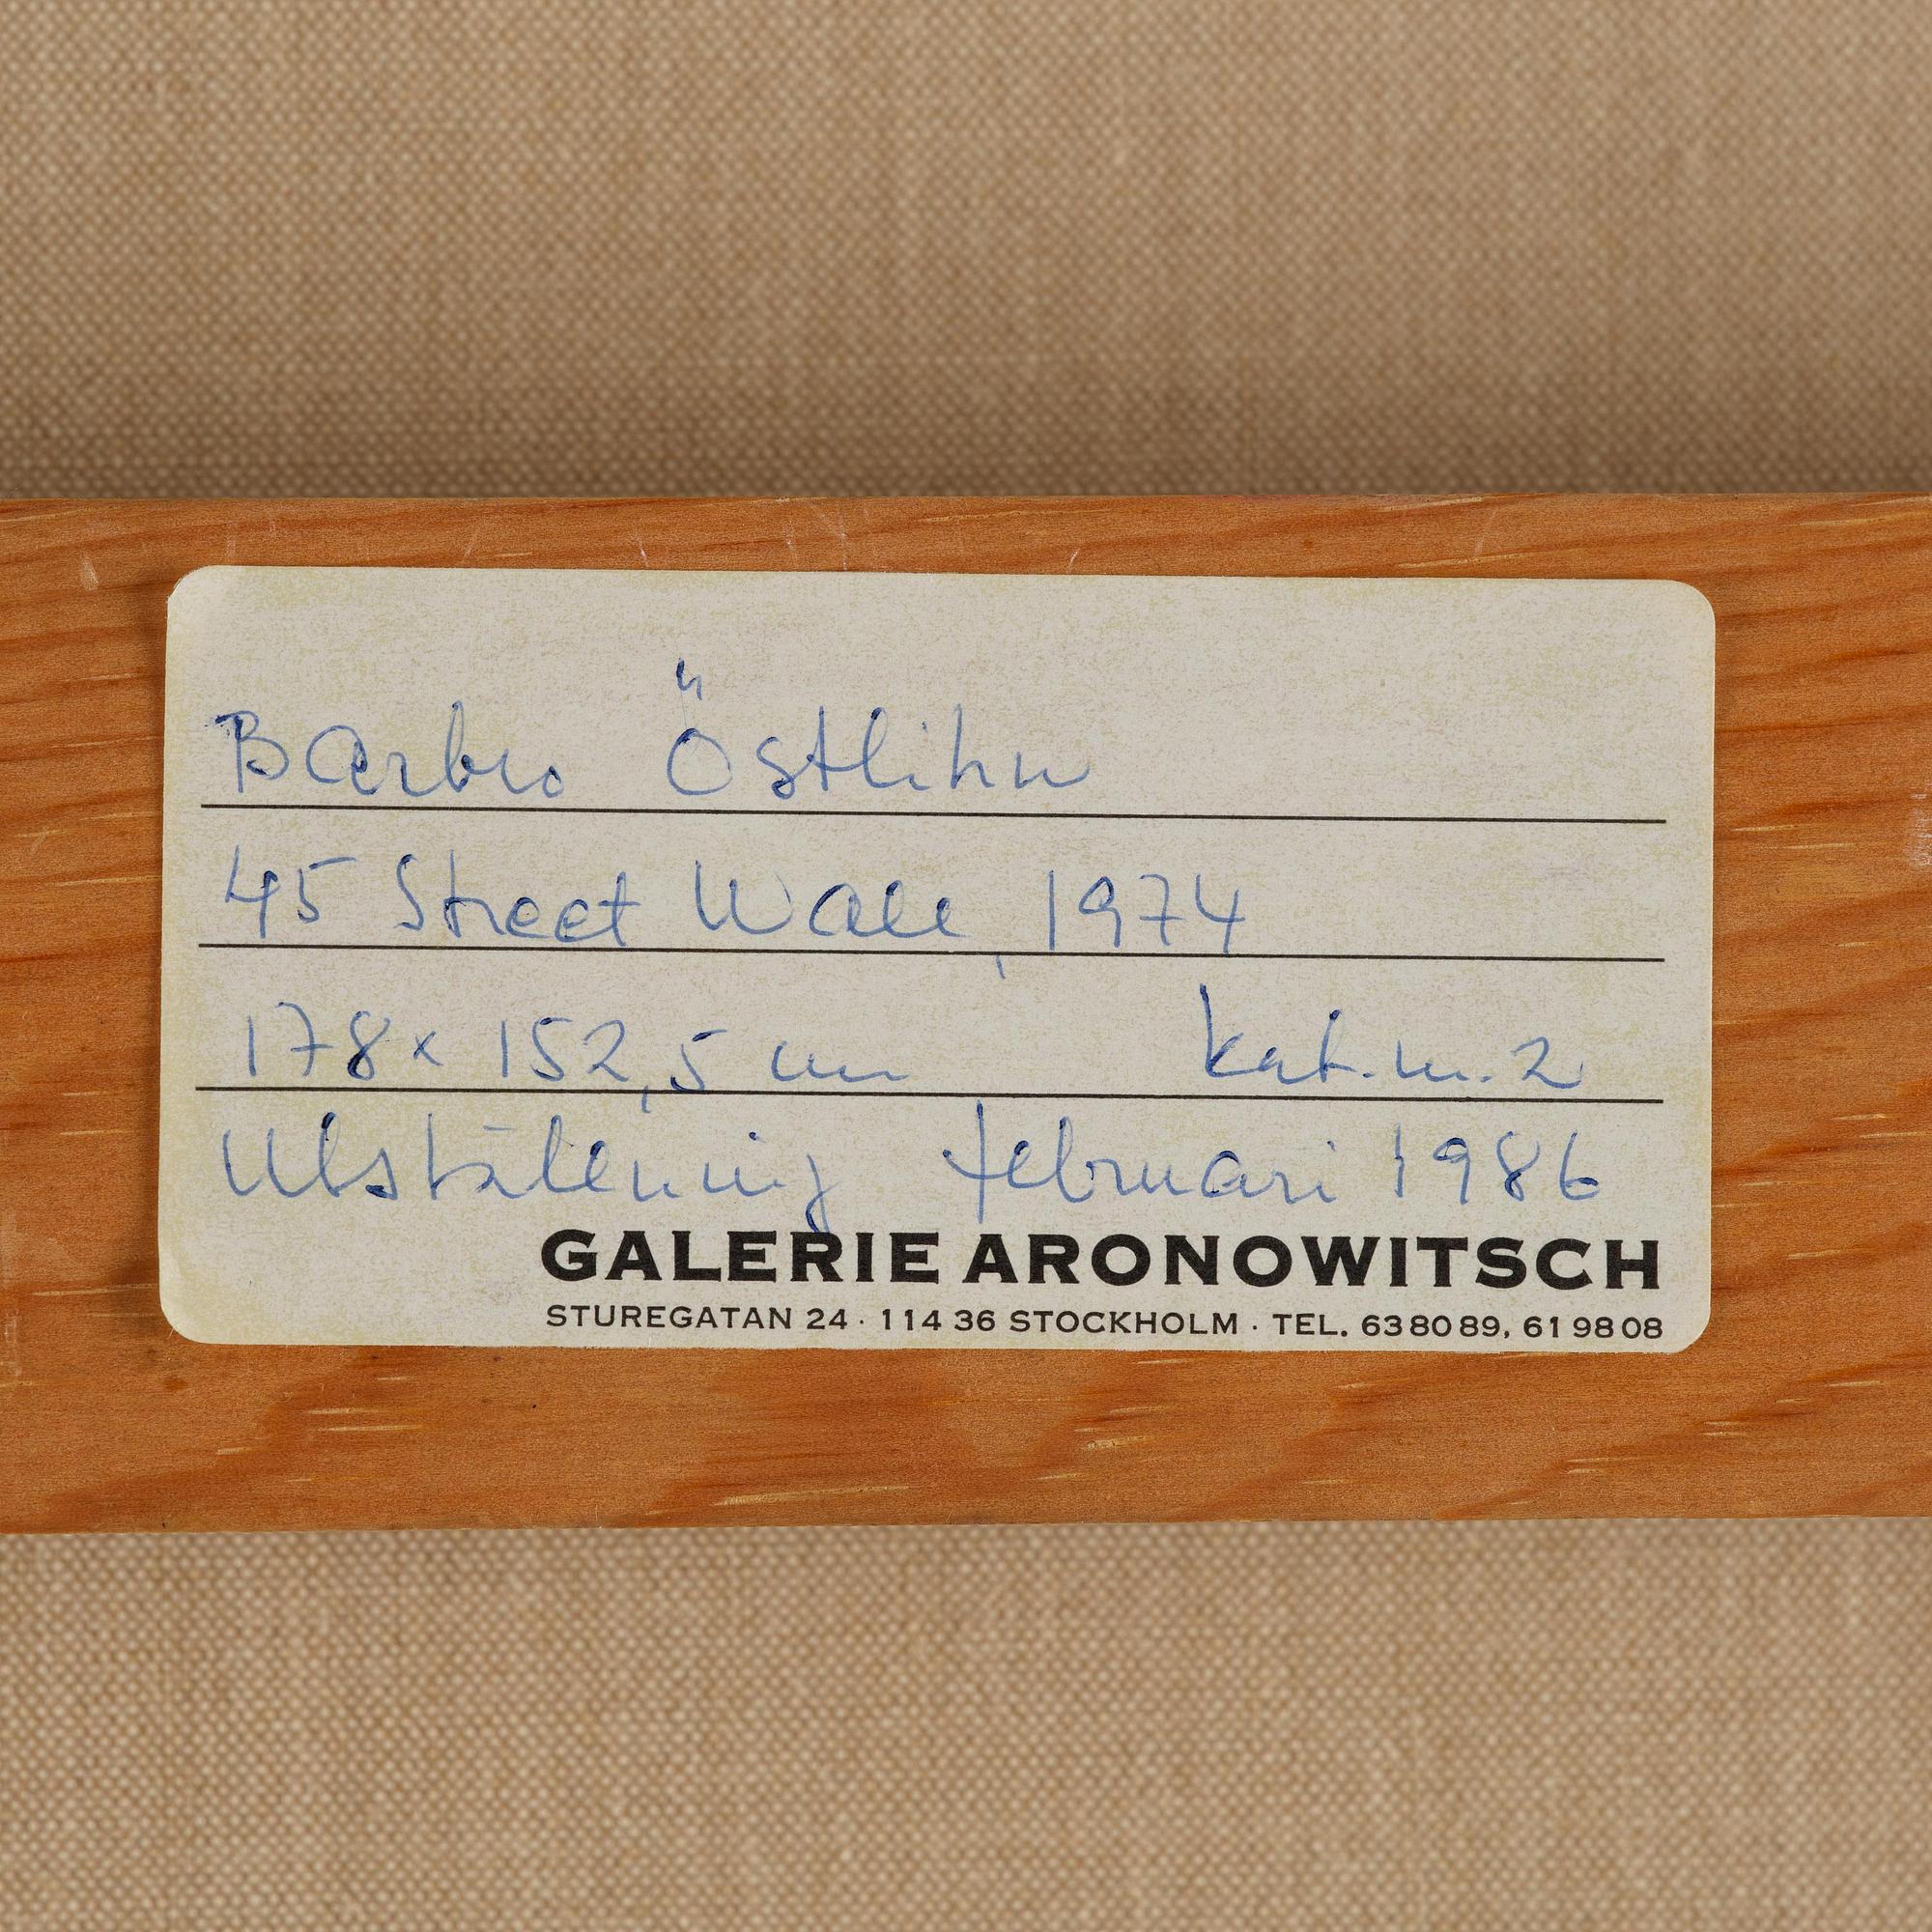 Barbro Östlihn
45 Street Wall, 1974
178x 152,5 cm kat.nr.2
Utställning februari 1986
GALERIE ARONOWITSCH
STUREGATAN 24 · 114 36 STOCKHOLM · TEL. 63 80 89, 61 98 08